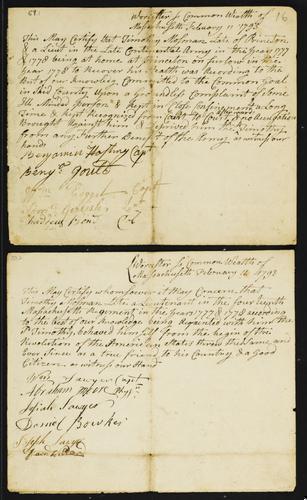 Worcester ss Common Wealth of
Massachusetts February 11 1793
This May Certify that Timothy Mosman Late of Princton
& a Lieut in the Late Continental Army in the year 1777
& 1778 being at home at Princton on furlow in the
year 1778 to Recover his health was According to the
Best of our Knowledge Committed to the Common Goal
in Said County Upon a groundless Complaint of Some
Ill Minded person & Kept in Close Confinement a Long
Time & kept Recognized from Court to Court & no Accusation
brought against him
from any Further Benefit of the Army as witness our
hands
Benjamin Capt
Benj.
Capt
16
Worcester ss Common Wealth of
Massachusetts February 14 1793
This May Certify whomsoever it May Concern that
Timothy Mosman Late a Lieutenant in the
Massachusetts Regement in the years 1777 & 1778 according
to the best of our Knowledge being Acquainted with him the
sd Timothy, behaved himself from the begin of the
Revolution of the American States threw the Same and
Ever Sense as a true friend to his Country & a good
Citizen as witness our Hand
Sawyer Capt
Abraham Moor
Josiah Sawyer
Daniel Bowker
Joseph Sawyer